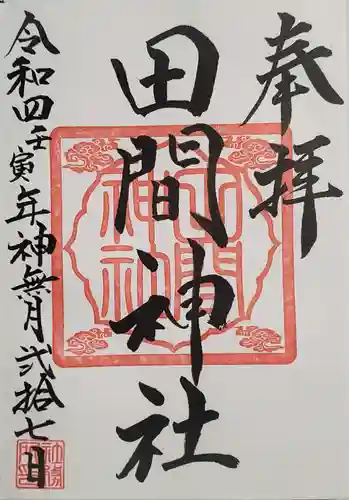 奉拝
田間神社
田間神社
令和四壬寅年神無月弐拾七日